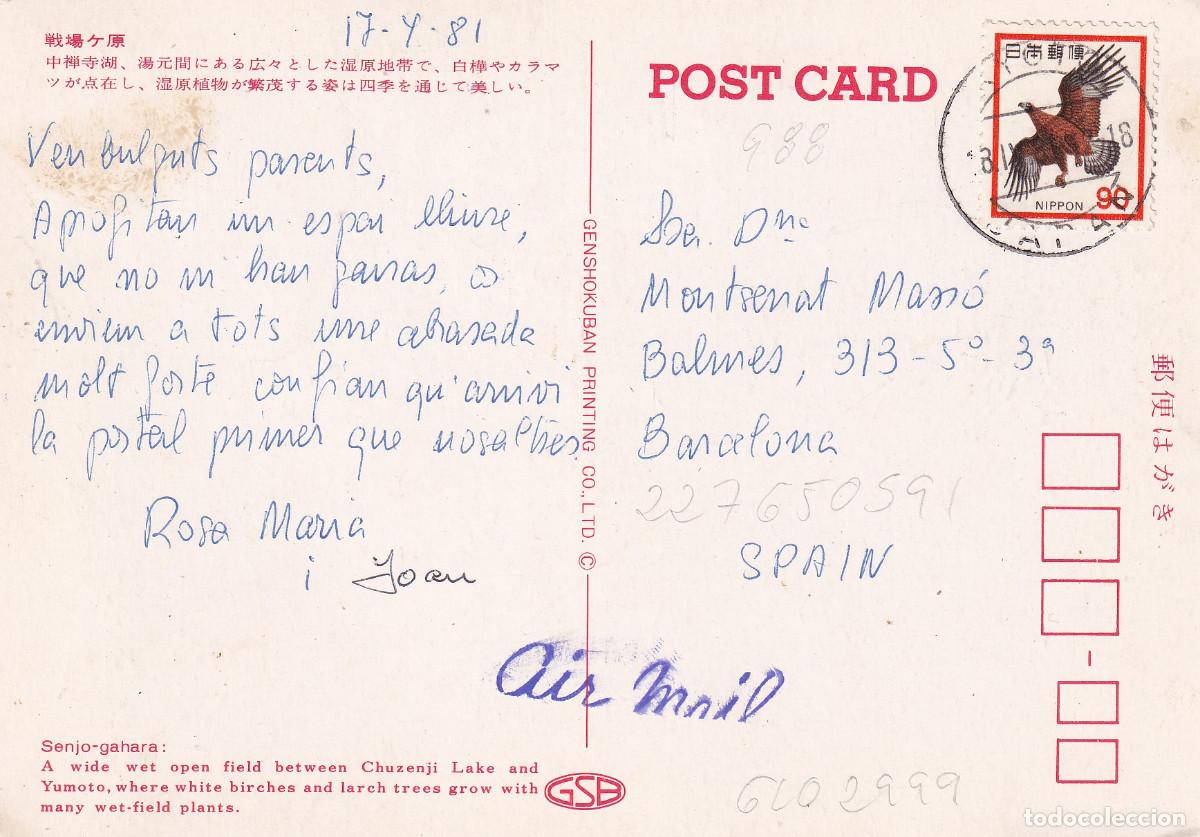 17-4-81
戦場ケ原
中禅寺湖、湯元間にある広々とした湿原地帯で、白樺やカラマ
ツが点在し、湿原植物が繁茂する姿は四季を通じて美しい。
Ven bulguts parents,
Aprofitan un espai lliure,
que no ni han gaires, os
enviem a tots une abrasada
molt forte confian qu'arrivi
la postal primer que nosaltres
Rosa Maria
i Joan
Senjo-gahara:
A wide wet open field between Chuzenji Lake and
Yumoto, where white birches and larch trees grow with
many wet-field plants.
GENSHOKUBAN PRINTING CO., LTD. ©
GSB
POST CARD
988
日本郵便
NIPPON 90
18
JAPAN
Sra. Dña
Montserrat Massó
Balmes, 313-5º-3ª
Barcelona
227650591
SPAIN
Air Mail
郵便はがき
6102999
todocoleccion